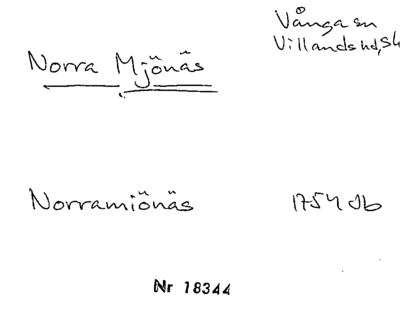 Norra Mjönäs
Vånga sn
Villands hd, Sk
Norramiönäs 1754 db
Nr 18344